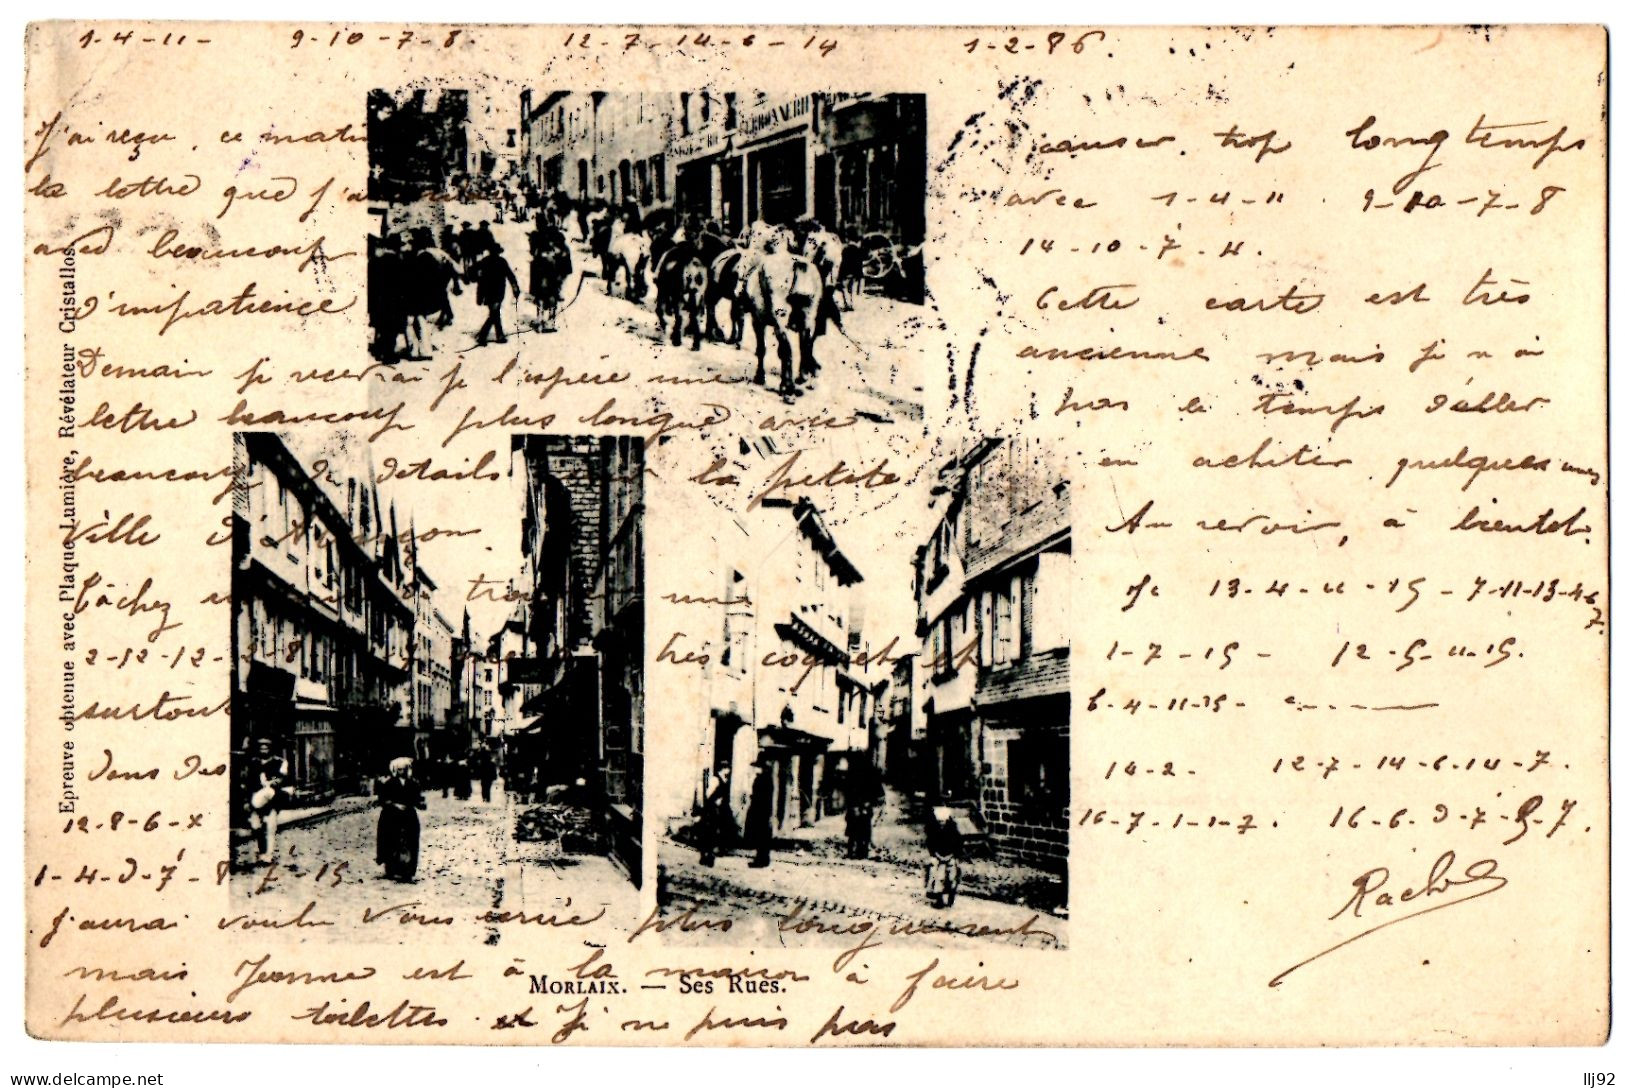 1-4-11- 9-10-7-8. 12-7-14-6-14 1-2-86.
J'ai reçu, ce matin
la lettre que j'
avec beaucoup
d'impatience
Demain je recevrai je l'espère une
lettre beaucoup plus longue avec
beaucoup de details la petite
Ville d'
Tâchez une
2-12-12-2-8 très coquets et
surtout
dans des
12-8-6-x
1-4-9-7-8 7-15.
J'aurai voulu vous écrire plus longuement
mais Jeanne est à la maison à faire
plusieurs toilettes et Je ne puis pas
causer trop longtemps
avec 1-4-11. 9-10-7-8
14-10-7-4.
Cette carte est très
ancienne mais je n'ai
pas le temps d'aller
en acheter quelques unes
Au revoir, à bientot.
Je 13-4-11-15-7-11-13-4-6
7.
1-7-15- 12-5-11-15.
6-4-11-15-
14-2- 12-7-14-6-14-7.
16-7-1-1-7. 16-6-9-7-5-7.
Rachel
Epreuve obtenue avec Plaque Lumière, Révélateur Cristallos
MORLAIX. — SES RUES.
llj92